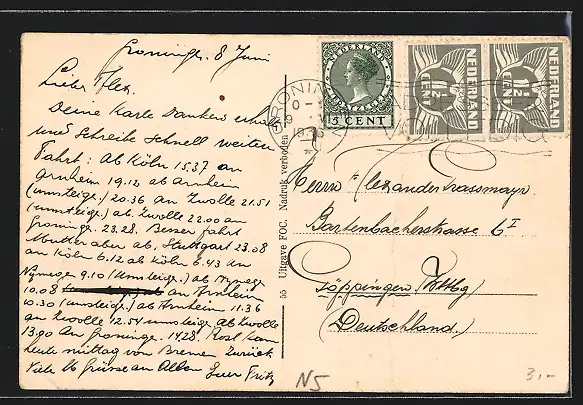 Groninge. 8 Juni
Lieber Alex.
Deine Karte Dankend erhalten
und Schreibe schnell weiter
Fahrt: Ab Köln 15.37 an
Arnheim 19.12 ab Arnheim
(umsteige.) 20.36 an Zwolle 21.51
(umsteige.) ab Zwolle 22.00 an
Groninge. 23.28. Besser fährt
Mutter aber ab. Stuttgart 23.08
an Köln 6.12 ab Köln 6.43 an
Nymege 9.10 (Umsteige.) ab Nymege
10.08 an Arnheim
10.30 (umsteige.) ab Arnheim 11.36
an Zwolle 12.54 umsteige. ab Zwolle
13.00 an Groninge. 14.28. Rosl kam
heute mittag von Bremen zurück
Viele lb Grüsse an Allen Euer Fritz
55 Uitgave FOC. Nadruk verboden
NEDERLAND
5 CENT
NEDERLAND
1½ CENT
NEDERLAND
1½ CENT
GRONIN
Herrn Alexander Trassmayr.
Bartenbacherstrasse 6 I
Göppingen (Wttbg)
(Deutschland.)
N5
3,-